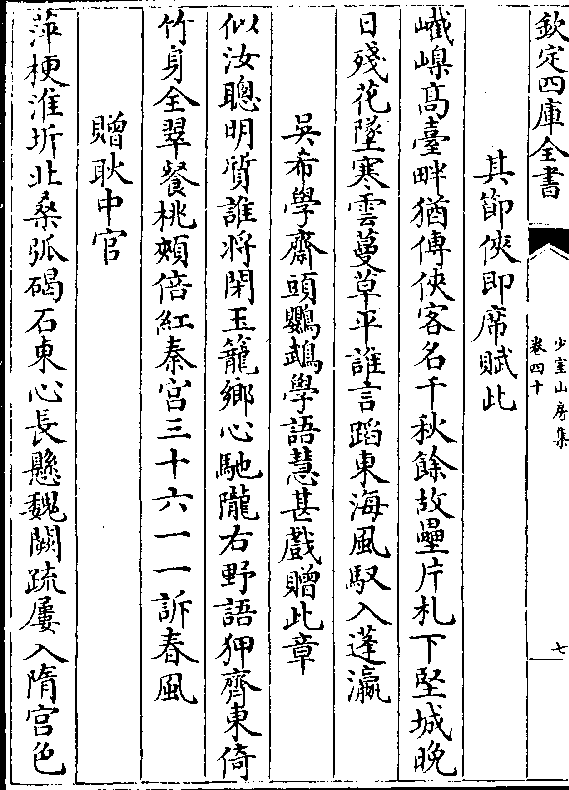 欽定四庫全書
少室山房集
卷四十
七
其節俠即席賦此
巀嵲髙臺畔猶傳俠客名千秋餘故壘片札下堅城晚
日殘花墜寒雲蔓草平誰言蹈東海風馭入蓬瀛
吳希學齋頭鸚鵡學語慧甚戲贈此章
似汝聰明質誰將閉玉籠鄉心馳隴右野語狎齊東倚
竹身全翠餐桃頰倍紅秦宫三十六一一訴春風
贈耿中官
萍梗淮圻北桑弧碣石東心長懸魏闕疏屢入隋宫色